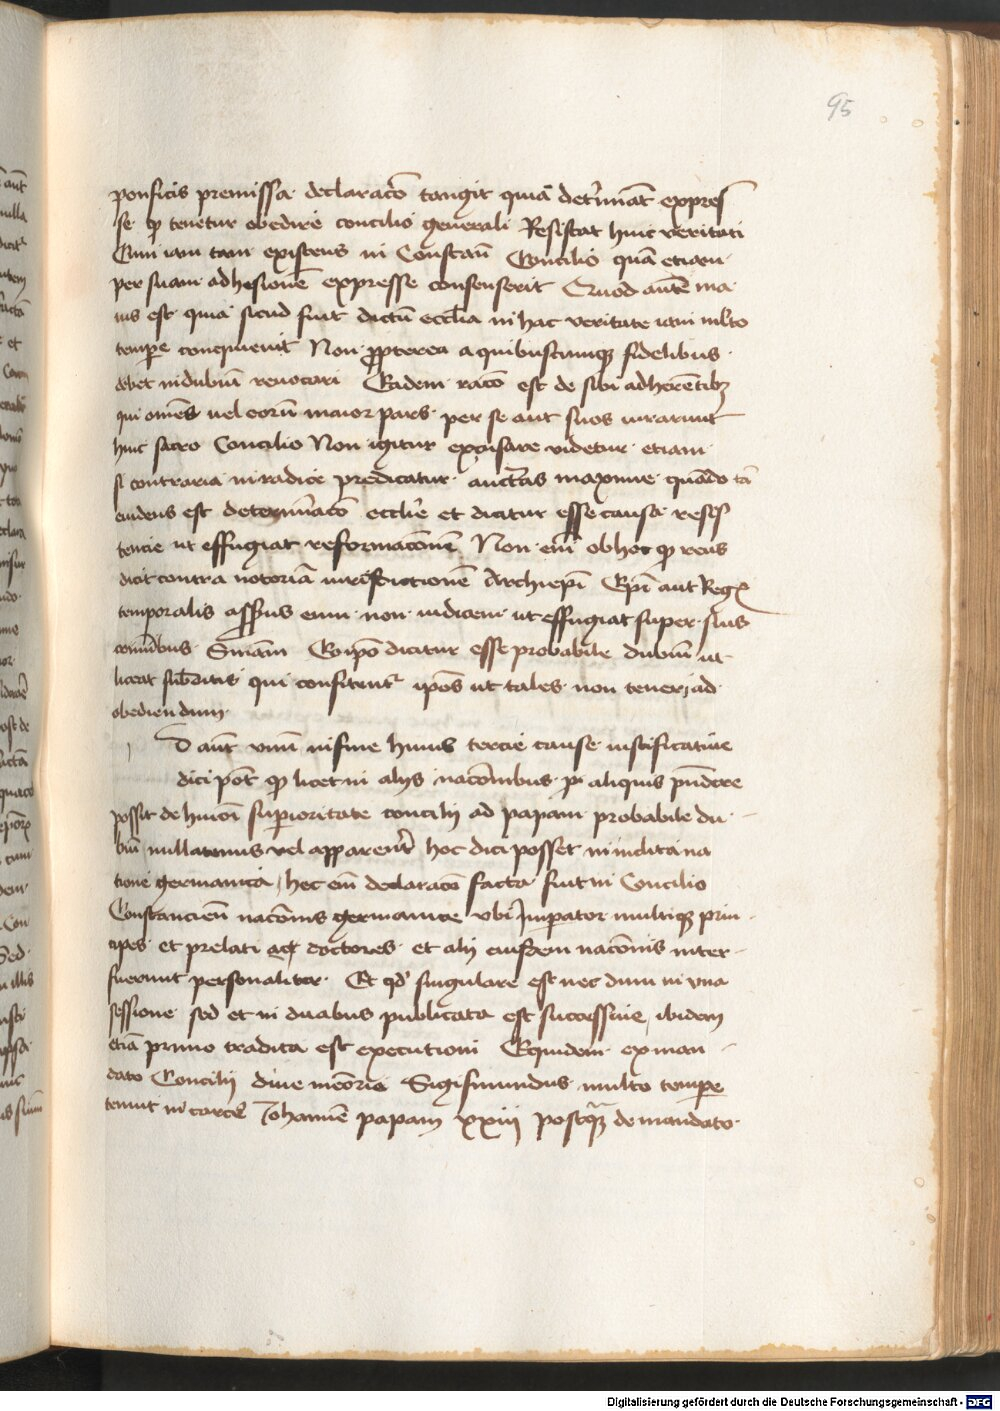 95
ponficis premissa declaracō tangit quia det'minat expres
se qp tenetur obedire concilio generali Resistat huic veritati
Cum iam tam existens in Constañ Concilio quā etiam
per suam adhesionē expresse consenserit Quod autē ma
ius est quia sicud fuit dictū eccl'ia in hac veritate iam m̄lto
tempe conquieuit Non ppterea a quibuscumqz fidelibus
debet in dubiū reuocari Eadem racō est de sibi adherētibz
qui om̄es uel eorū maior pars per se aut suos iurarunt
huic sacro Concilio Non igitur excusare videtur etiam
si contraria in radice predicatur auct'tas maxime quādo tā
euidens est determīacō eccl'ie et dicatur esse causa resis
tencie ut effugiat reformacōnem Non em̄ ob hoc qp reus
dicit contra notoriā iurisdictionē Archiepī Epī aut Reg
temporalis asserens eum non iudicem ut effugiat super suis
cōmībus Sniam̄ Compō dicitur esse probabile dubiū ut
liceat subditis qui confitent' ipōs ut tales non teneri ad
obediendum
D aut̄ vnū in fine huius tercie cause iustificatiue
dici pōt qp licet in alijs nacōnibus aliquis p̄ndere
possit de huiōi superioritate concilij ad papam probabile du
biū nullatenus vel apparent' hoc dici posset in inclita na
tione germanica, hec em̄ declaracō facta fuit in Concilio
Constancieñ nacōnis germanice vbi Imperator multiqz prin
cipes et prelati atqz doctores et alij eiusdem nacōnis inter
fuerunt personaliter Et qd' singulare est nec dum in vna
sessione sed et in duabus publicata est successiue, ibidem
etiā primo tradita est executioni Equidem ex man
dato Concilij diue mēorie Sigismundus multo tempe
tenuit in carcē Johannē papam xxiij postqz de mandato
Digitalisierung gefördert durch die Deutsche Forschungsgemeinschaft - DFG